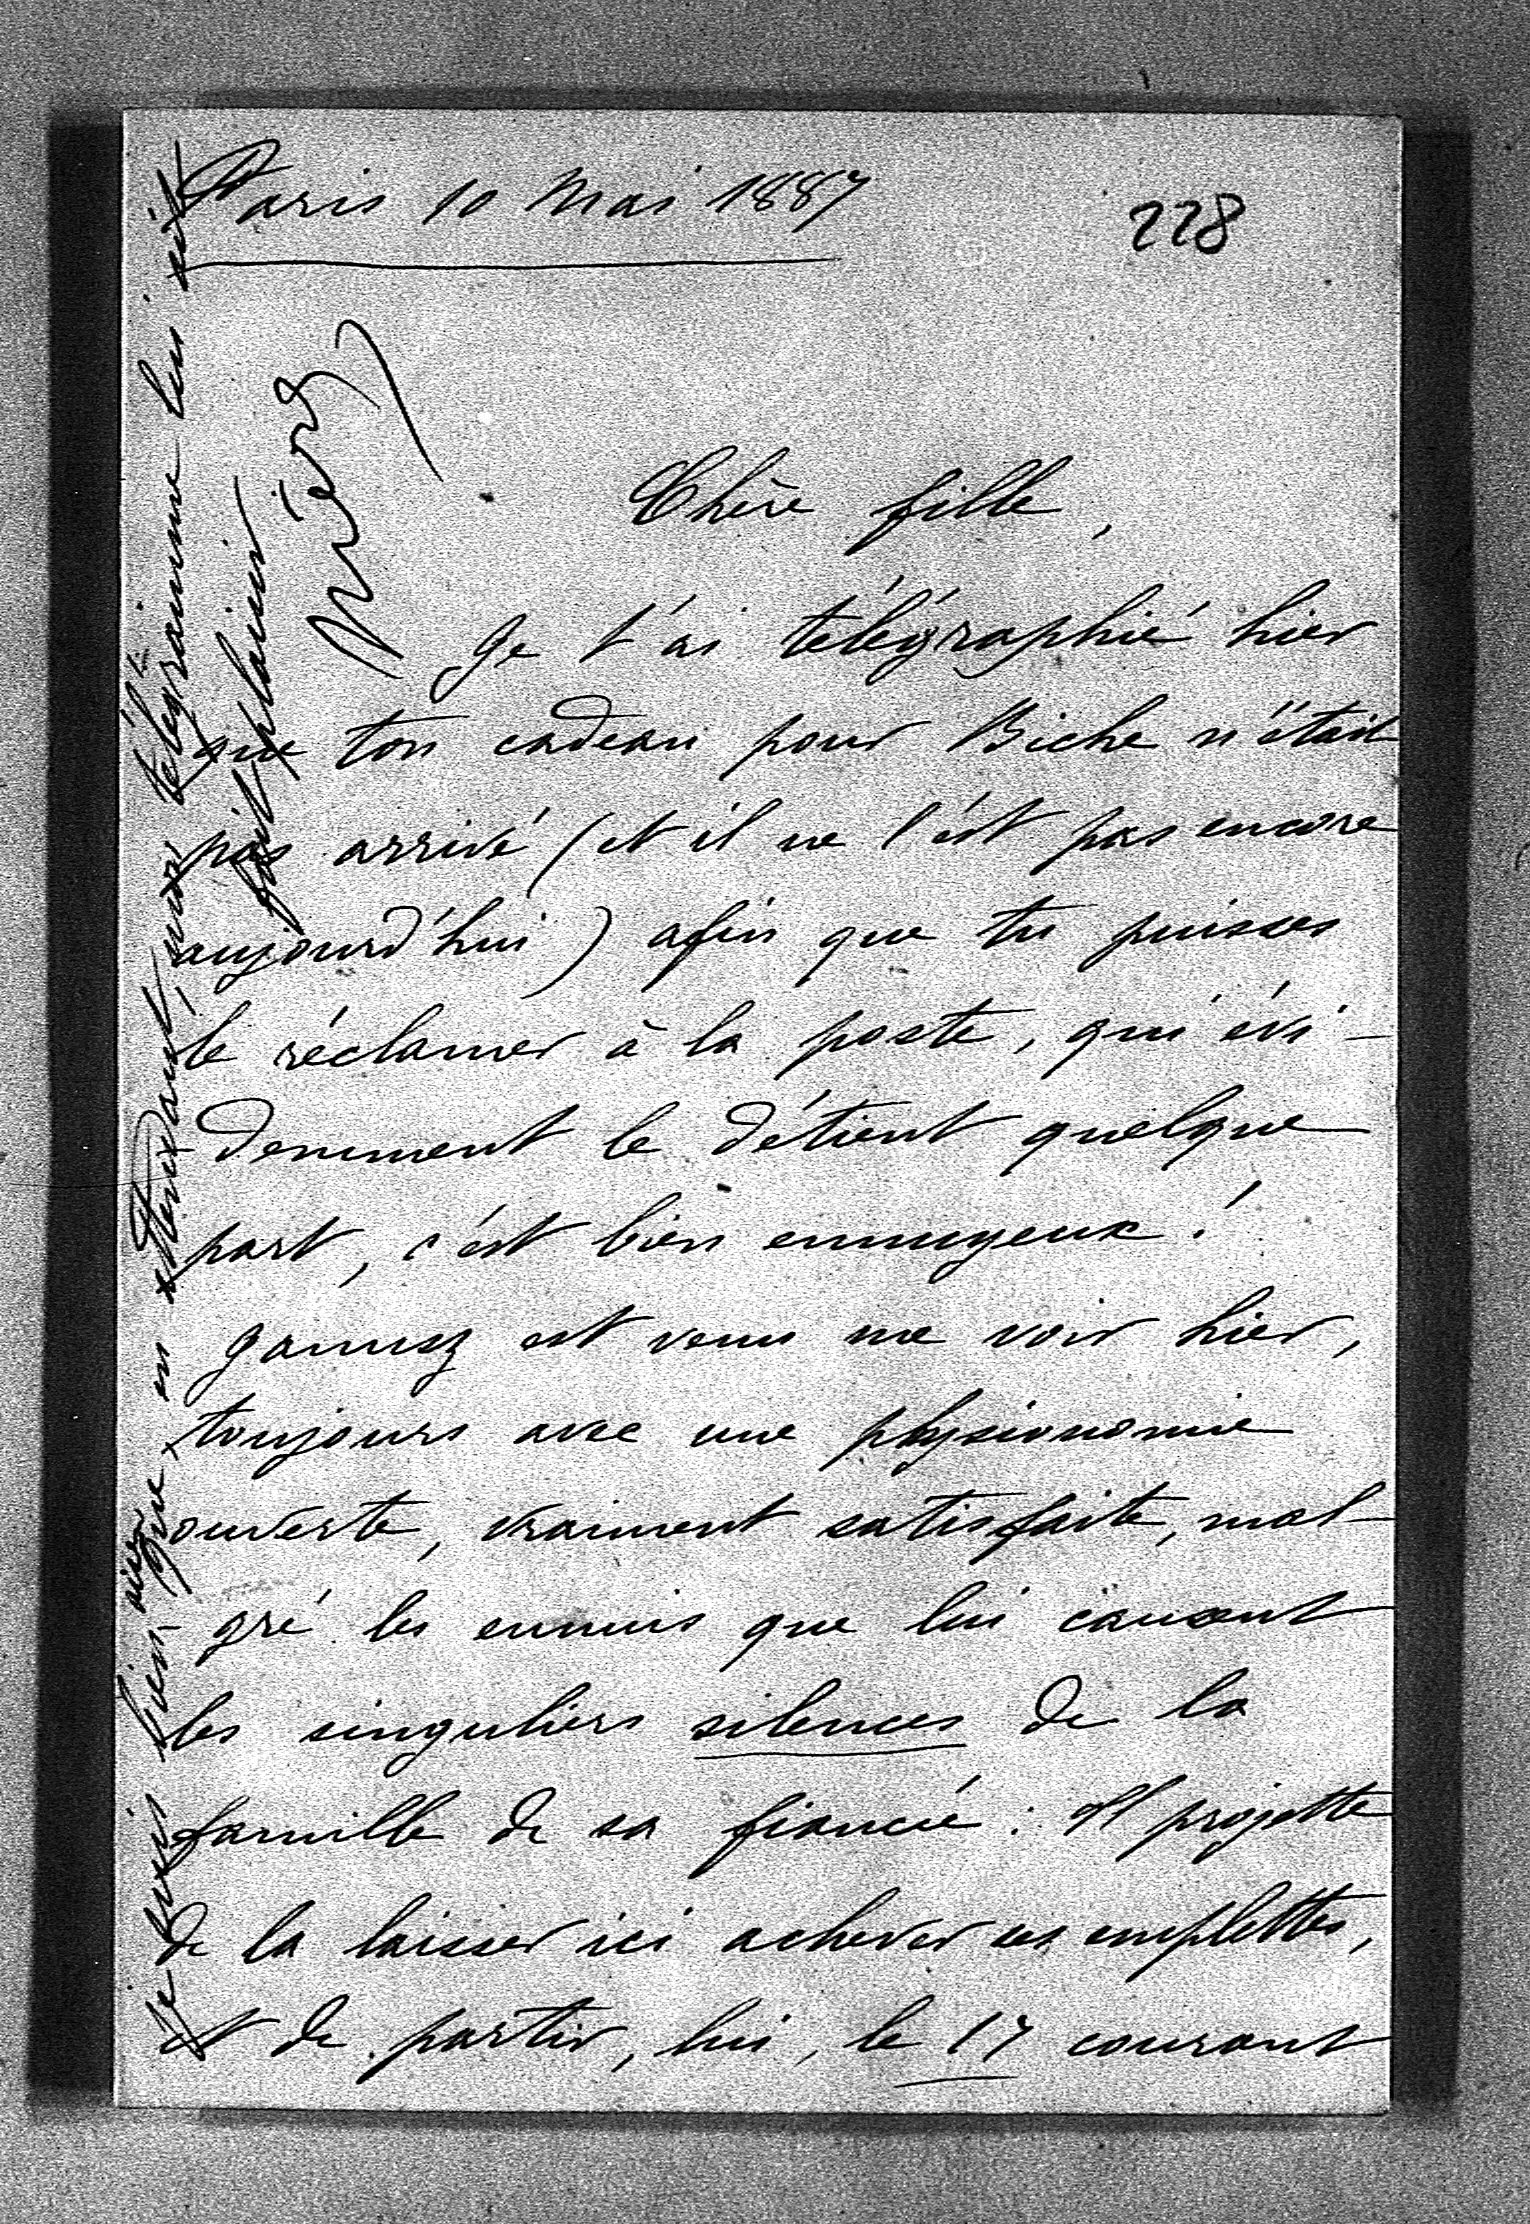 Paris 10 Mai 1887
228
Chère fille,
Je t'ai télégraphié hier
que ton cadeau pour Biche n'était
pas arrivé (et il ne l'est pas encore
aujourd'hui) afin que tu puisses
le réclamer à la poste, qui évi-
demment le détient quelque
part, c'est bien ennuyeux!
est venu me voir hier,
toujours avec une physionomie
ouverte, vraiment satisfaite, mal-
gré les ennuis que lui causent
les singuliers silences de la
famille de sa fiancée: Il projette
de la laisser ici achever ses emplettes,
et de partir, lui, le 17 courant
Je suis bien aise
que, en attendant, mon télégramme lui ait
fait plaisir
Mère